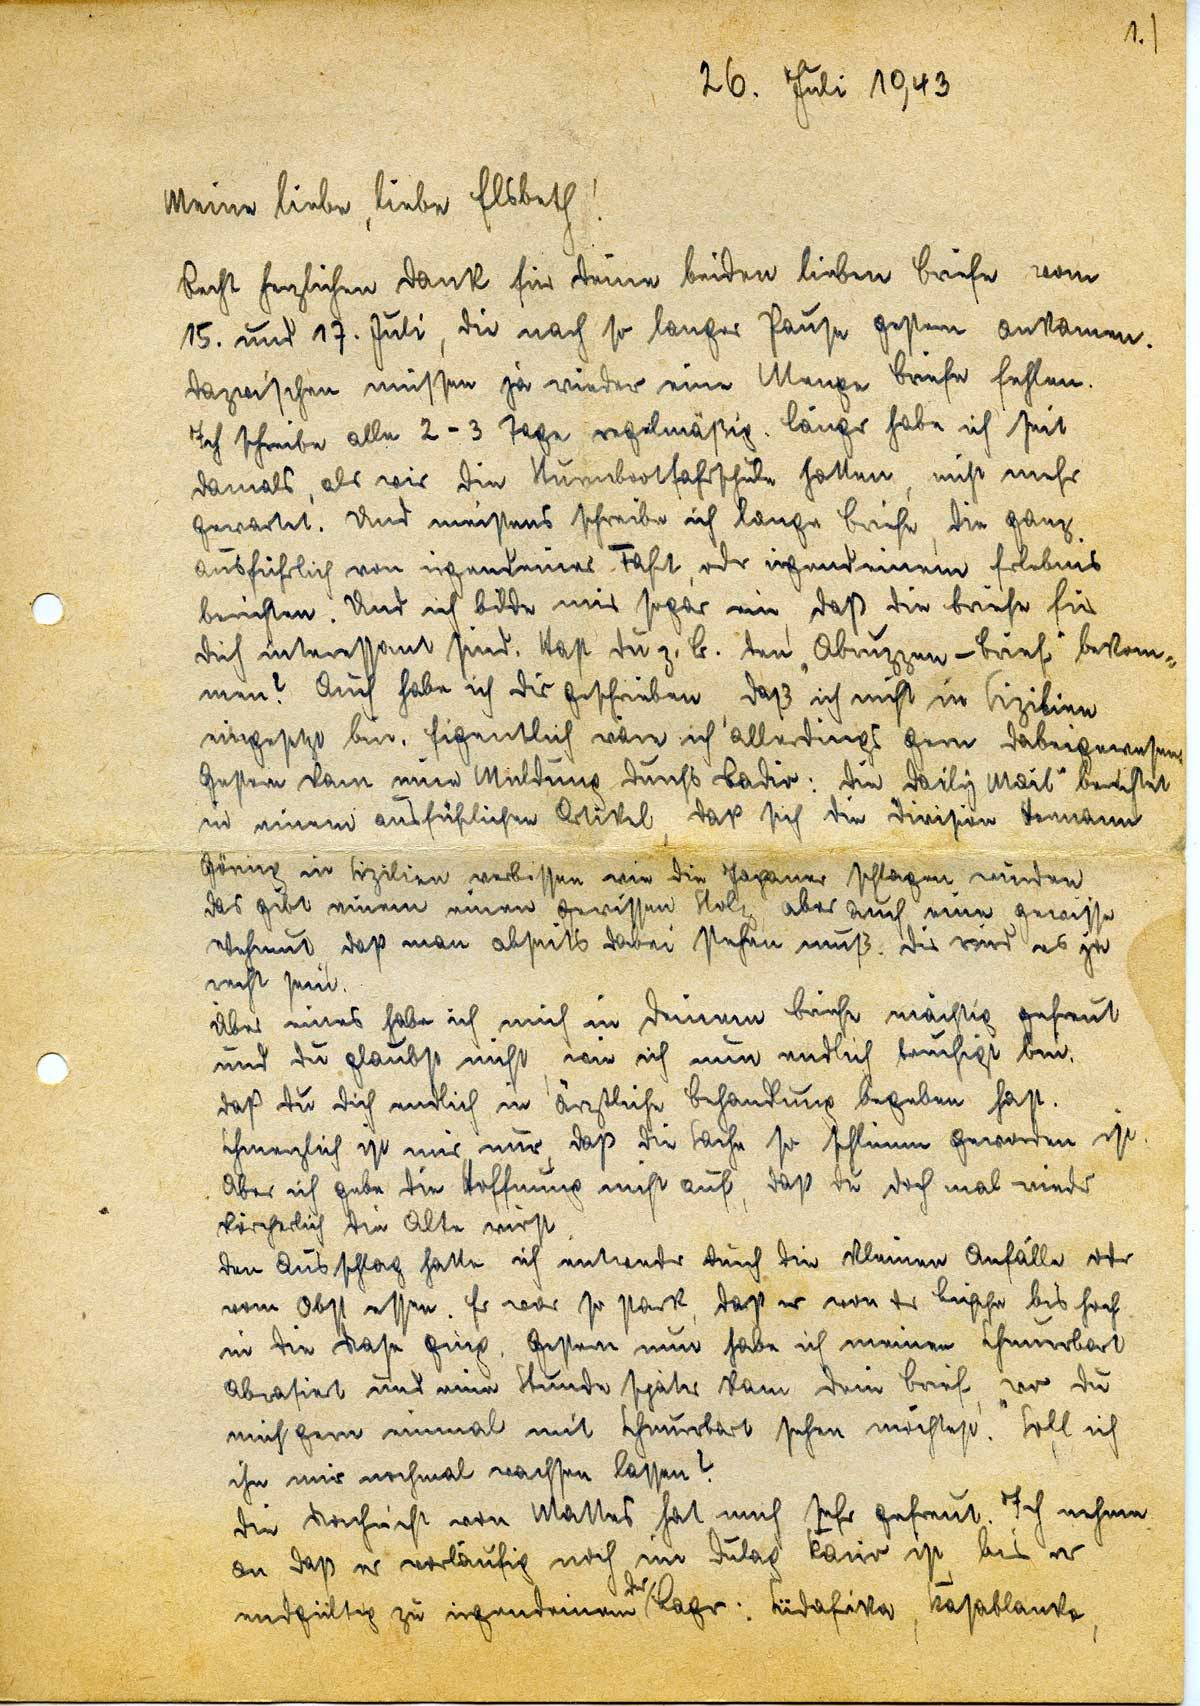 1.)
26. Juli 1943
Meine liebe, liebe Elsbeth!
Recht herzlichen Dank für Deine beiden lieben Briefe vom
15. und 17. Juli, die nach so langer Pause gestern ankamen.
Dazwischen müssen ja wieder eine Menge Briefe fehlen.
Ich schreibe alle 2-3 Tage regelmäßig. Länger habe ich seit
damals, als wir die Sturmbootfahrschule hatten, nicht mehr
gewartet. Und meistens schreibe ich lange Briefe, die ganz
ausführlich von irgendeiner Fahrt, oder irgendeinem Erlebnis
berichten. Und ich bilde mir sogar ein, daß die Briefe für
Dich interessant sind. Hast Du z. B. den „Abruzzen-Brief" bekom=
men? Auch habe ich Dir geschrieben, daß ich nicht in Sizilien
eingesetzt bin. Eigentlich wäre ich allerdings gern dabeigewesen.
Gestern kam eine Meldung durchs Radio: Die „Daily Mail" berichtet
in einem ausführlichen Artikel, daß sich die Division Hermann
Göring in Sizilien verbissen wie die Japaner schlagen würden
Das gibt einem einen gewissen Stolz aber auch eine gewisse
Wehmut, daß man abseits dabei stehen muß. Dir wird es ja
recht sein.
Über eines habe ich mich in Deinem Briefe mächtig gefreut
und Du glaubst nicht, wie ich nun endlich beruhigt bin.
Daß Du Dich endlich in ärztliche Behandlung begeben hast.
Schmerzlich ist mir nur, daß die Sache so schlimm geworden ist.
Aber ich gebe die Hoffnung nicht auf, daß Du doch mal wieder
körperlich die Alte wirst.
Den Ausschlag hatte ich entweder durch die kleinen Anfälle oder
vom Obst essen. Er war so stark, daß er von der bis hoch
in die Nase ging. Gestern nun habe ich meinen Schnurrbart
abrasiert und eine Stunde später kam Dein Brief, wo Du
mich gern einmal mit Schnurrbart sehen möchtest. Soll ich
ihn mir nochmal wachsen lassen?
Die Nachricht von Mattes hat mich sehr gefreut. Ich nehme
an daß er vorläufig noch im Dulag Kairo ist, bis er
endgültig zu irgendeinem der Lager: Südafrika, Kasablanka,